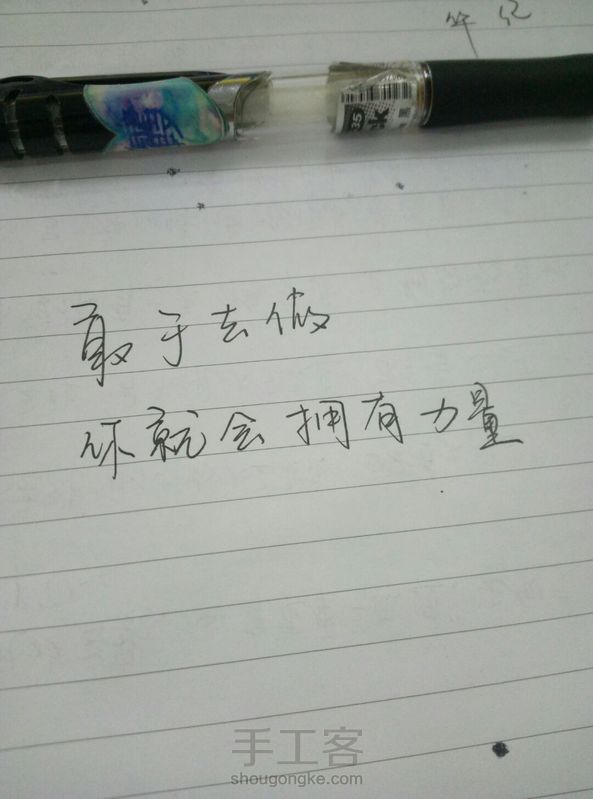 笔记
敢于去做
你就会拥有力量
手工客
shougongke.com